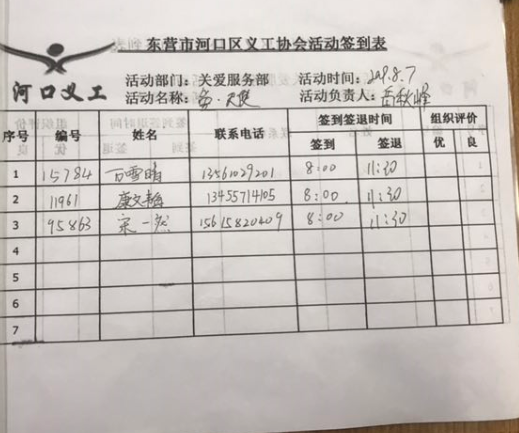 东营市河口区义工协会活动签到表
河口义工
活动部门：关爱服务部 活动时间：2018.8.7
活动名称： 活动负责人：岳秋峰
序号 编号 姓名 联系电话 签到签退时间 组织评价
签到 签退 优 良
1 15784 万雪晴 13561029201 8:00 11:30
2 11961 康文梅 13455714105 8:00 11:30
3 95863 宋一然 15615820409 8:00 11:30
4
5
6
7